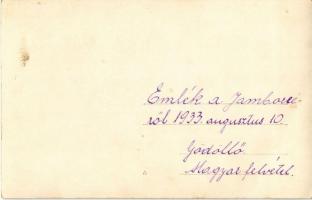 Emlék a Jamboree-
ról 1933. augusztus 10.
Gödöllő.
Magyar felvétel.